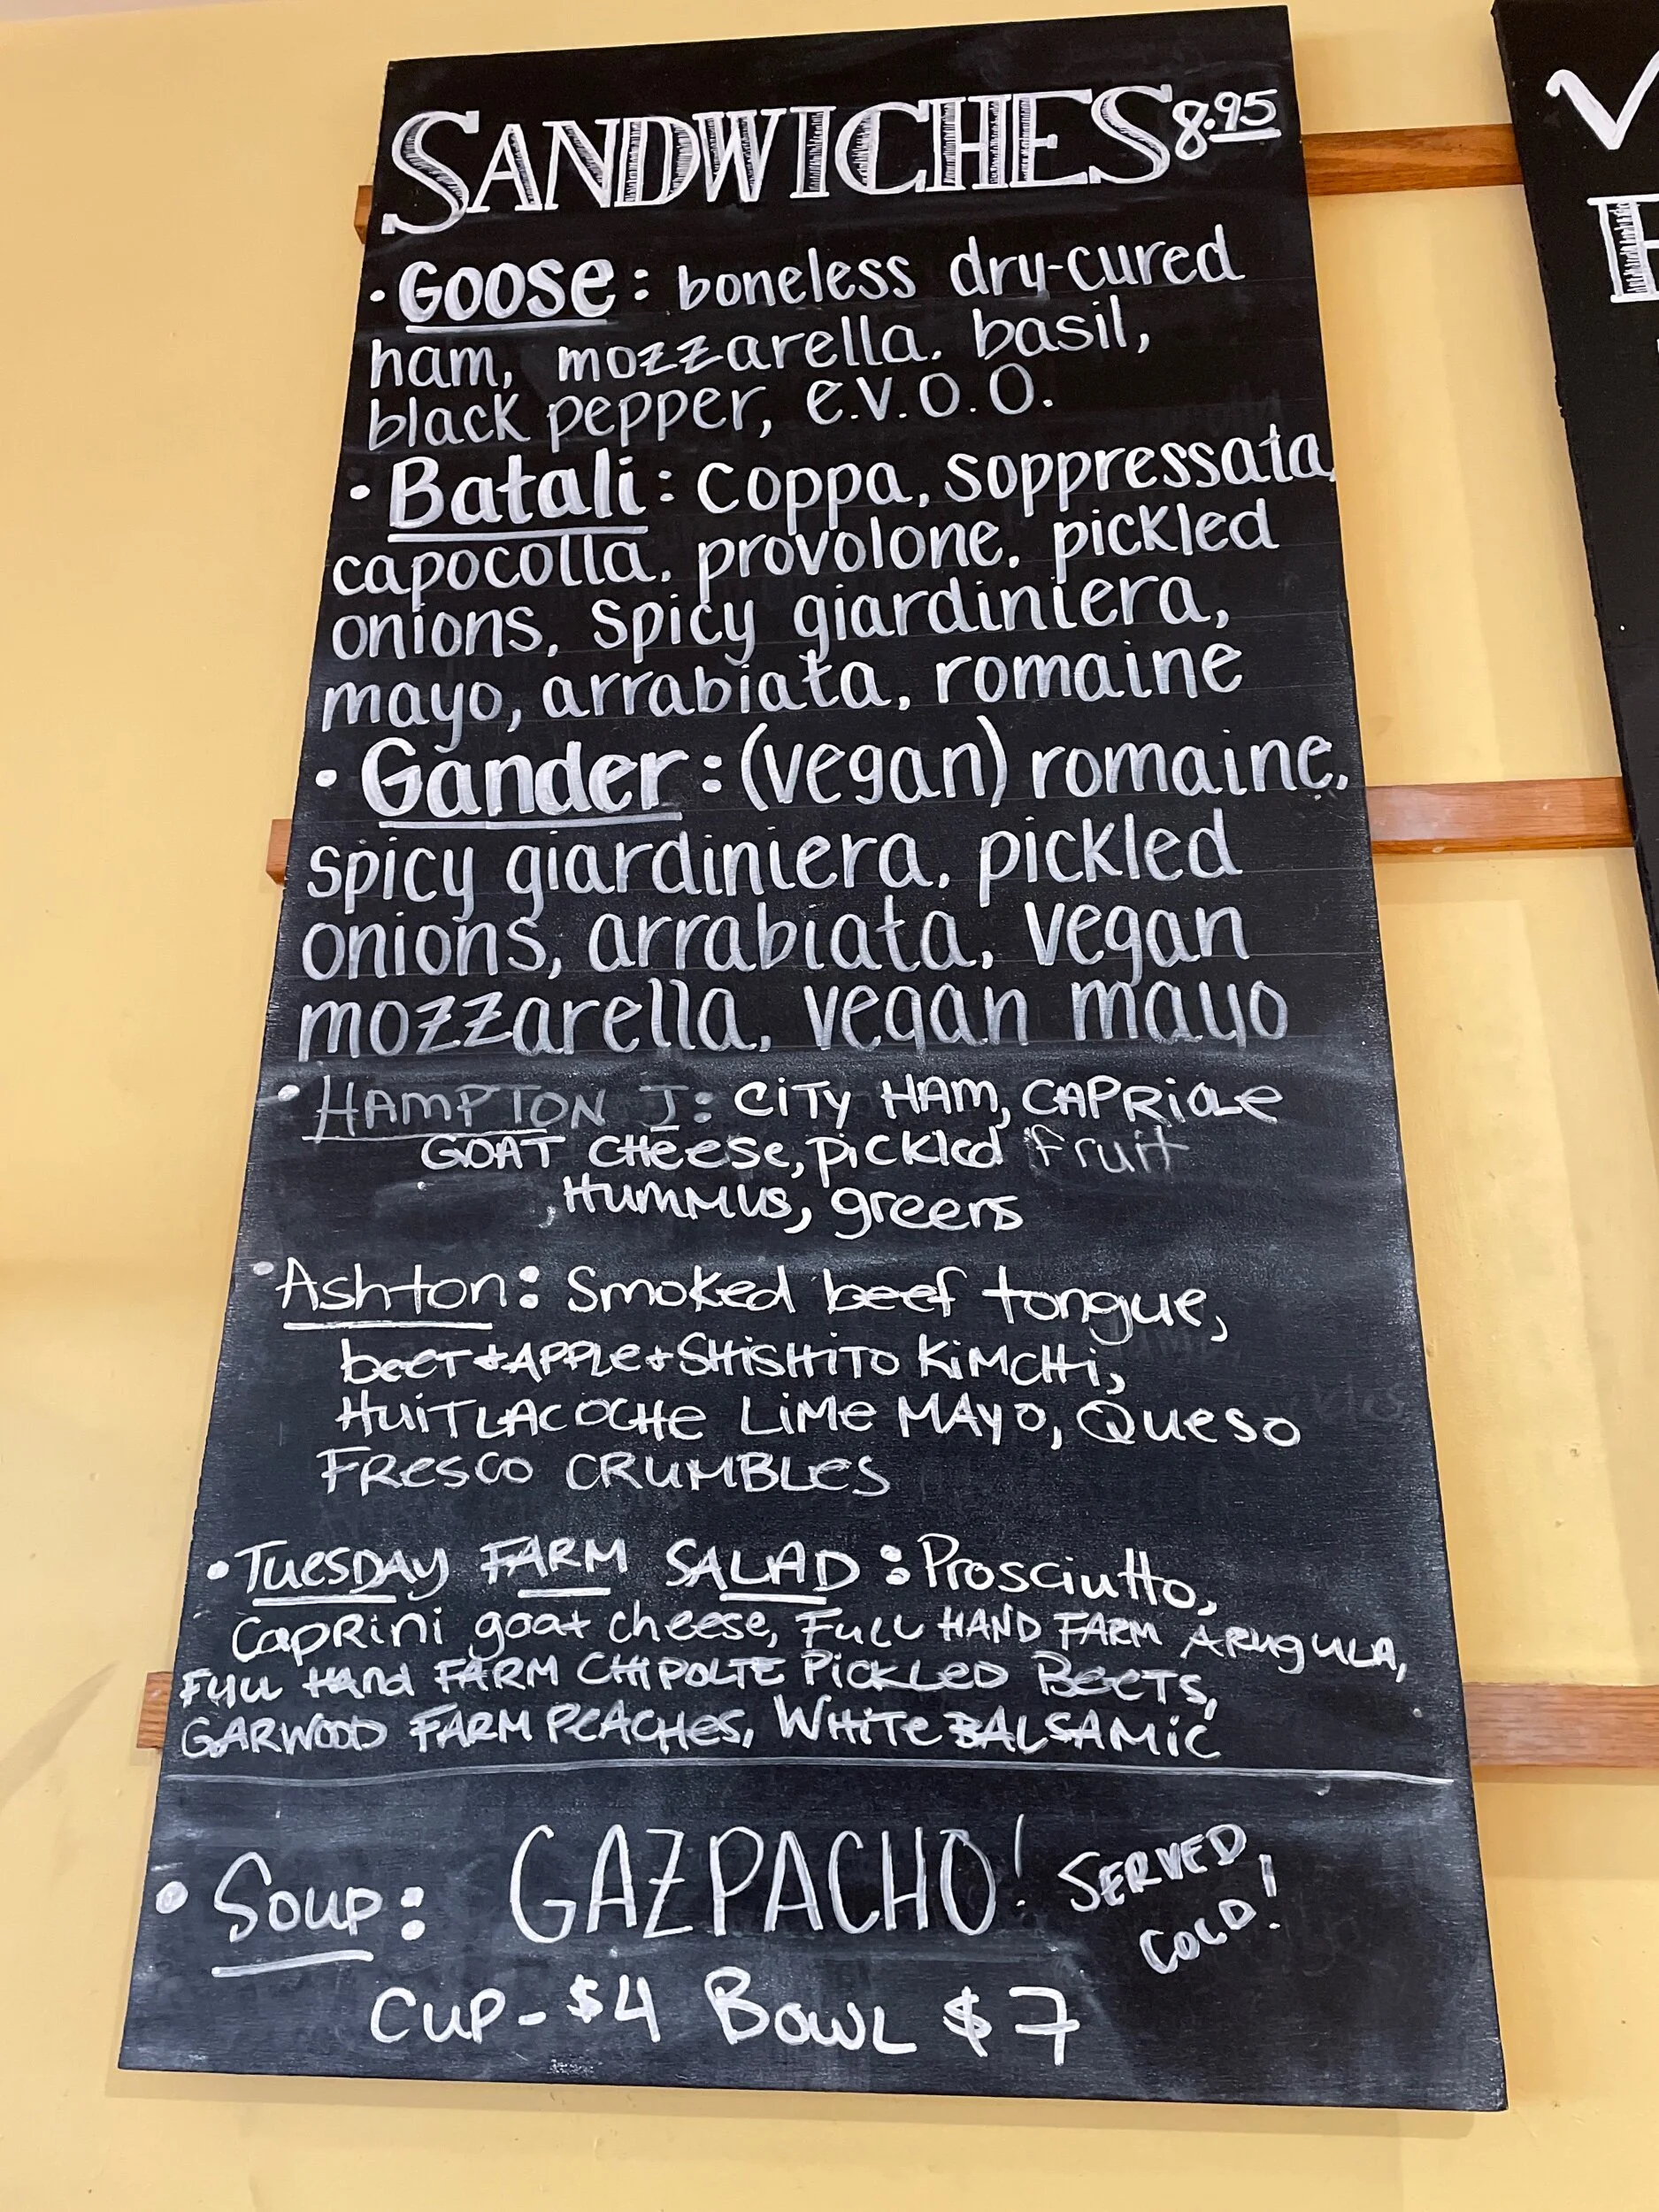 SANDWICHES 8.95
• Goose: boneless dry-cured
ham, mozzarella, basil,
black pepper, e.v.o.o.
• Batali: coppa, soppressata,
capocolla, provolone, pickled
onions, spicy giardiniera,
mayo, arrabiata, romaine
• Gander: (vegan) romaine,
spicy giardiniera, pickled
onions, arrabiata, vegan
mozzarella, vegan mayo
• HAMPTON J: CITY HAM, CAPRIOLE
GOAT CHEESE, pickled fruit
, HUMMUS, greens
• Ashton: Smoked beef tongue,
beet + APPLE + SHISHITO KIMCHI,
HUITLACOCHE LIME MAYO, QUESO
FRESCO CRUMBLES
• TUESDAY FARM SALAD: Prosciutto,
CAPRINI goat cheese, FULL HAND FARM ARUGULA,
FULL Hand FARM CHIPOLTE PICKLED BEETS,
GARWOOD FARM PEACHES, WHITE BALSAMIC
• SOUP: GAZPACHO! SERVED
COLD!
CUP - $4 BOWL $7